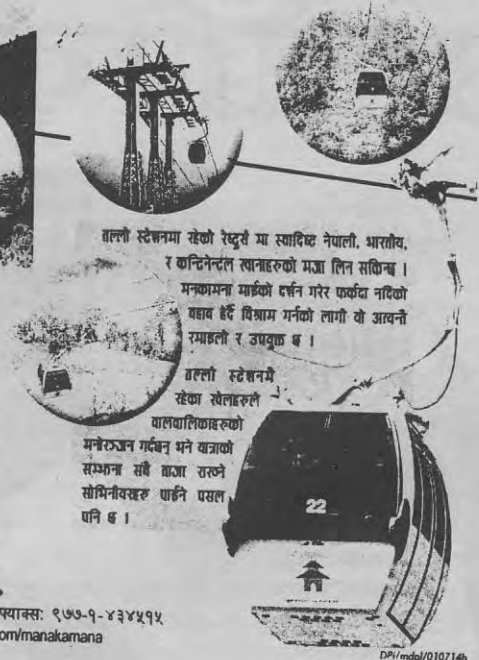 तल्लो स्टेशनमा रहेको रेष्टुराँ मा स्वादिष्ट नेपाली, भारतीय,
र कन्टिनेन्टल खानाहरुको मजा लिन सकिन्छ ।
मनकामना माईको दर्शन गरेर फर्कदा नदिको
वहाव हेर्दै विश्राम गर्नको लागी यो अत्यन्तै
रमाइलो र उपयुक्त छ ।
तल्लो स्टेशनमै
रहेका खेलहरुले
वालवालिकाहरुको
मनोरञ्जन गर्दछन् भने यात्राको
सम्झना सधै ताजा राख्ने
सोभिनीयरहरु पाईने पसल
पनि छ ।
22
फ्याक्स: ९७७-१-४३४५१५
om/manakamana
DPI/mdpl/010714b